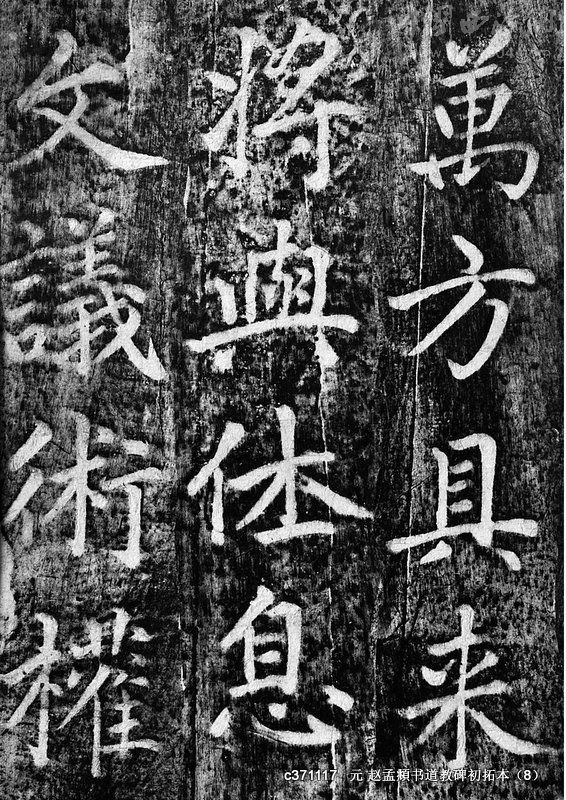 萬方具来
將與休息
文議術權
c371117 元 赵孟頫书道教碑初拓本（8）